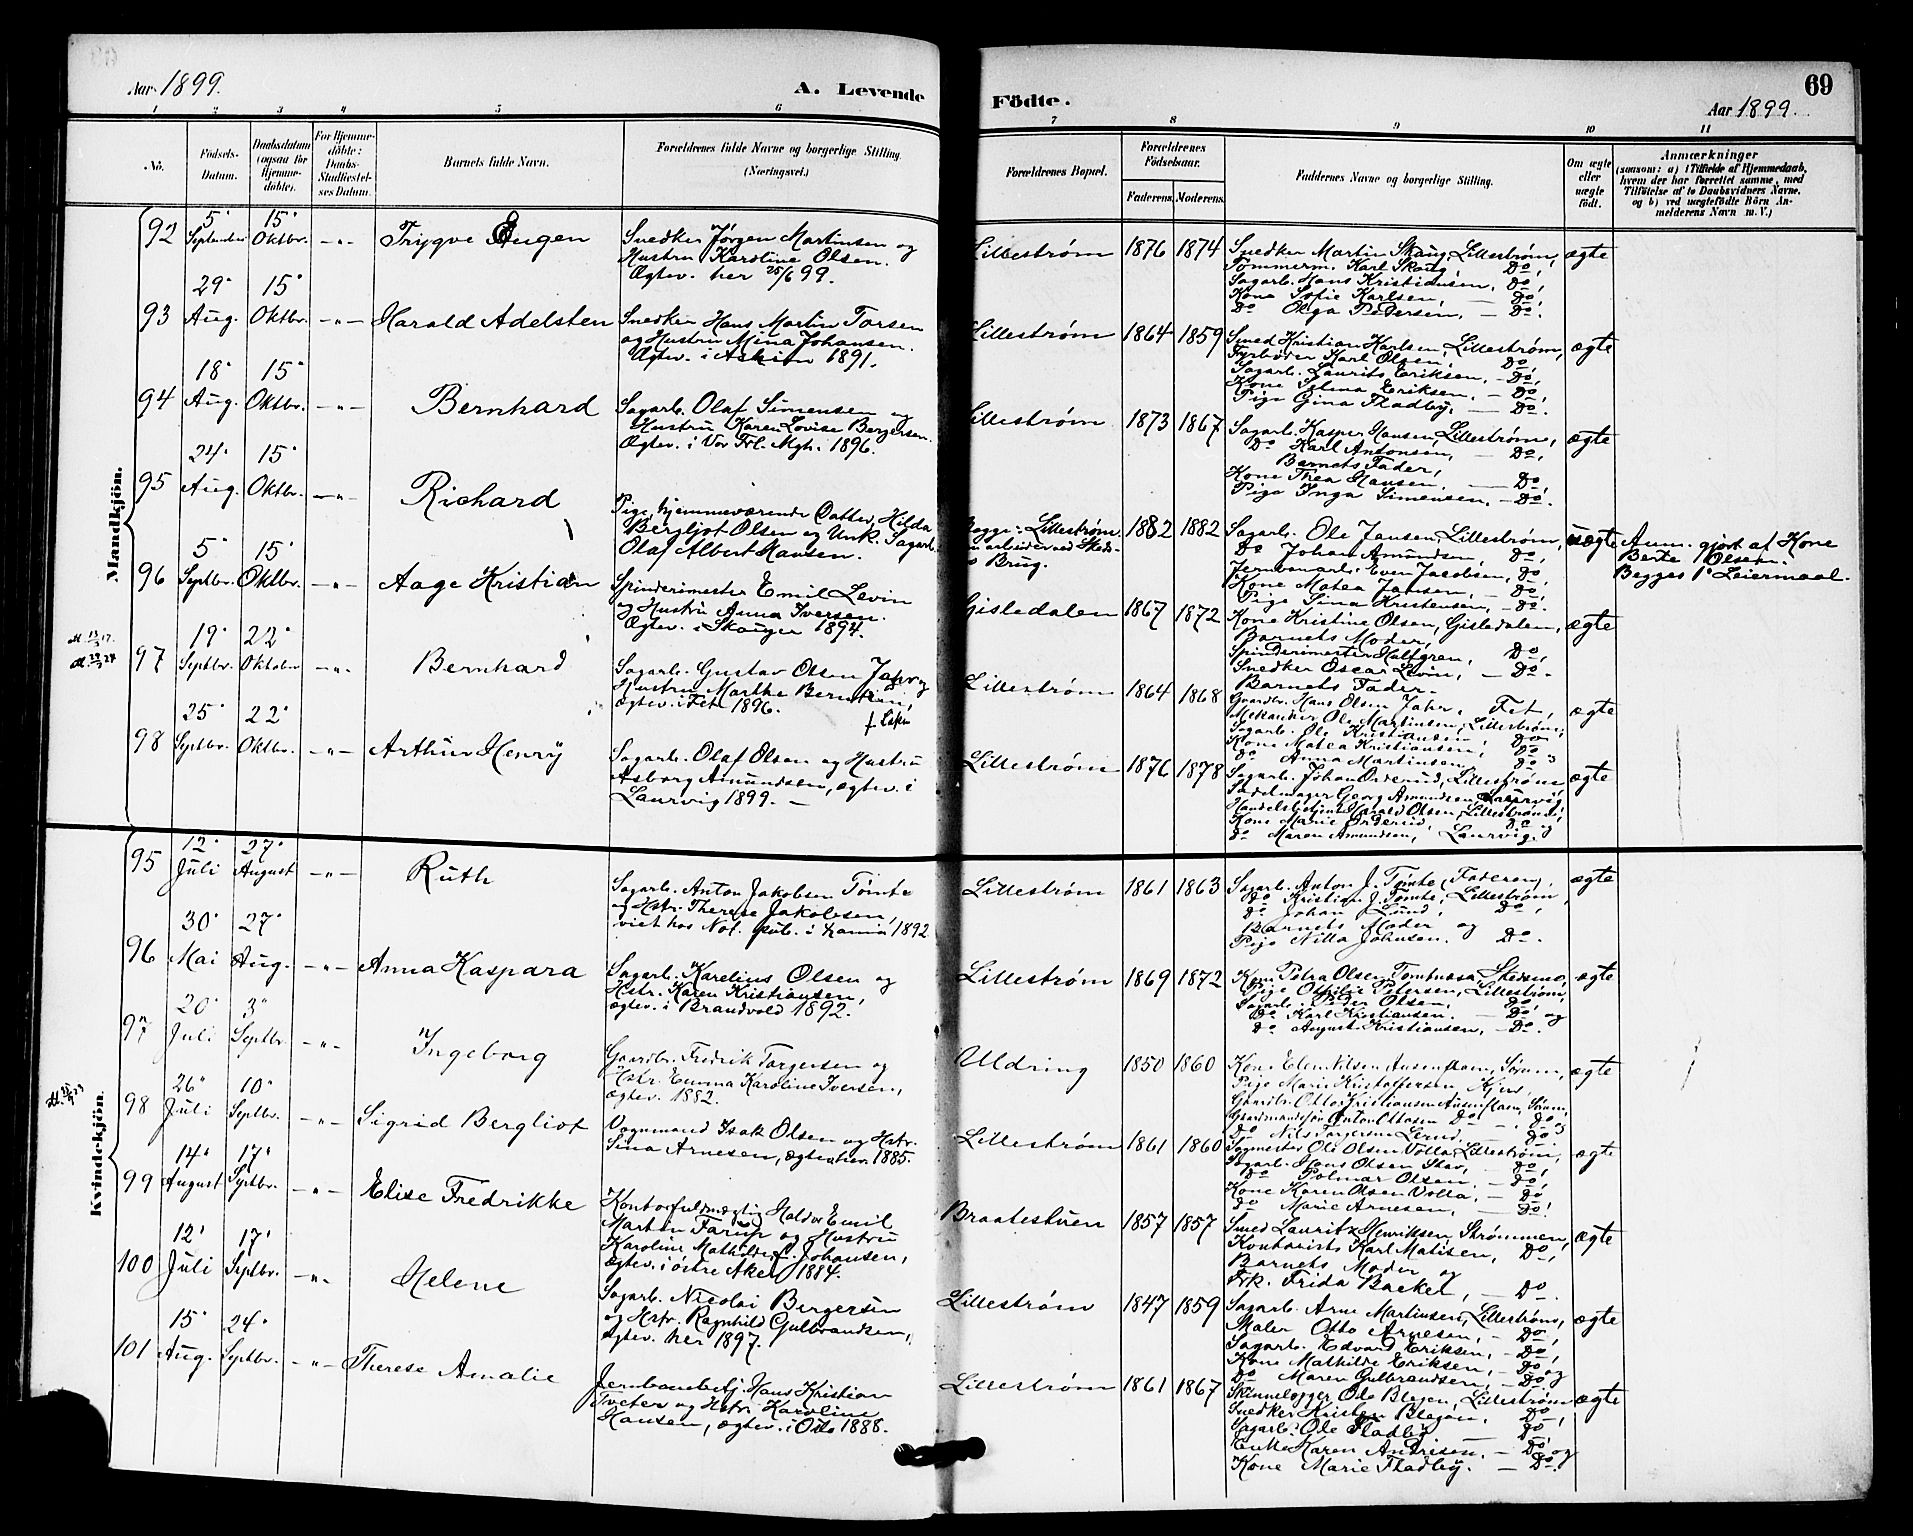 Aar 1899.
A. Levende
Födte.
69
Aar 1899.
1 2 3 4 5 6 7 8 9 10 11
No.
Födsels-
Datum.
Daabsdatum
(ogsaa for
Hjemme-
döbte).
For Hjemme-
döbte:
Daabs-
Stadfæstel-
ses Datum.
Barnets fulde Navn.
Forældrenes fulde Navne og borgerlige Stilling.
(Næringsvei.)
Forældrenes Bopæl.
Forældrenes
Födselsaar.
Faderens. Moderens.
Faddernes Navne og borgerlige Stilling.
Om ægte
eller
uægte
födt.
Anmærkninger
(saasom: a) i Tilfælde af Hjemmedaab,
hvem der har forrettet samme, med
Tilföielse af to Daabsvidners Navne,
og b) ved uægtefödte Börn An-
melderens Navn m. V.)
Mandkjön.
92 5' September 15' Oktbr. -"- Trygve Eugen
Snedker Jørgen Martinsen og
Hustru Karoline Olsen.
Ægtev. her 25/6 99.
Lillestrøm 1876 1874
Snedker Martin Skaug, Lillestrøm,
Tømmerm. Karl Skaug, Do,
Sagarb. Hans Kristiansen, Do,
Kone Sofie Karlsen, — Do,
Do Olga Pedersen, — Do.
ægte
93 29' Aug. 15' Oktbr. -"- Harald Adelsten
Snedker Hans Martin Torsen
og Hustru Mina Johansen.
Ægtev. i Askim 1891.
Lillestrøm 1864 1859
Smed Kristian Karlsen, Lillestrøm,
Fyrbøder Karl Olsen, Do,
Sagarb. Laurits Eriksen, - Do,
Kone Selma Eriksen, - Do,
Pige Gina Fladby, — Do.
ægte
94 18' Aug. 15' Oktbr. -"- Bernhard
Sagarb. Olaf Simensen og
Hustru Karen Lovise Bergersen.
Ægtev. i Vor Frl. Mgh. 1896.
Lillestrøm 1873 1867
Sagarb. Kasper Hansen, Lillestrøm,
Do Karl Antonsen, — Do,
Barnets Fader,
Kone Thea Hansen, — Do,
Pige Inga Simensen, - Do.
ægte
95 24' Aug. 15' Oktbr. -"- Richard
Pige, hjemmeværende Datter, Hilda
Bergljot Olsen og Unk. Sagarb.
Olaf Albert Hansen.
Begge: Lillestrøm
arbeider ved Skeds-
mo Brug.
1882 1882
Sagarb. Ole Jansen, Lillestrøm,
Do Johan Amundsen Do,
Jernbanarb. Even Jacobsen, Do,
Kone Matea Jansen, - Do,
Pige Sina Kristensen, - Do.
uægte
Anm. gjort af Kone
Berte Olsen.
Begges 1' Leiermaal.
96 5' Septbr. 15' Oktbr. -"- Aage Kristian
Spinderimester Emil Levin
og Hustru Anna Iversen.
Ægtev. i Skouger 1894.
Gisledalen 1867 1872
Kone Kristine Olsen, Gisledalen,
Barnets Moder,
Spinderimester Hallgren, Do,
Snedker Oscar Levin, - Do.
Barnets Fader.
ægte
97 19' Septbr. 22' Oktober -"- Bernhard
Sagarb. Gustav Olsen Jahr og
Hustru Marthe Berntsen,
ægtev. i Fet 1896.
Lillestrøm 1864 1868
Gaardbr. Hans Olsen Jahr, Fet,
Mekaniker Ole Martinsen, Lillestrøm,
Sagarb. Ole Kristiansen, Do
Kone Matea Kristiansen, Do
Do Anna Martinsen, Do
ægte
98 25' Septbr. 22' Oktbr. -"- Arthur Henry
Sagarb. Olaf Olsen og Hustru
Asborg Amundsen, ægtev. i
Laurvig 1899. —
Lillestrøm 1876 1878
Sagarb. Johan Orderud, Lillestrøm,
Sadelmager Georg Amundsen, Laurvig,
Handelsbetjent Harald Olsen, Lillestrøm,
Kone Marie Orderud, Do og
Do Maren Amundsen, Laurvig.
ægte
Kvindekjön.
95 12' Juli 27' August -"- Ruth
Sagarb. Anton Jakobsen Tømte
og Hstr. Therese Jakobsen,
viet hos Not. publ. i Krania 1892.
Lillestrøm 1861 1863
Sagarb. Anton J. Tømte (Faderen),
Do Kristian J. Tømte, Lillestrøm,
Do Johan Lund, Do,
Barnets Moder og
Pige Nilla Johnsen. Do.
ægte
96 30' Mai 27' Aug. -"- Anna Kaspara
Sagarb. Karelius Olsen og
Hstr. Karen Kristiansen,
ægtev. i Brandvold 1892.
Lillestrøm 1869 1872
Kone Petra Olsen, Skedsmo,
Pige Othilie Petersen, Lillestrøm,
Sagarb. Peder Olsen, Do,
Do Karl Kristiansen. — Do, og
Do August Kristiansen, - Do.
ægte
97 20' Juli 3" Septbr -"- Ingeborg
Gaardbr. Fredrik Torgersen og
Hstr. Emma Karoline Iversen,
ægtev. 1882.
Uldring 1850 1860
Kone Elen Nilsen Ausenstam, Sørum,
Pige Marie Kristoffersen, Hjem,
Gaardbr. Otto Kristiansen Ausenstam, Sørum,
Gaardmandssøn Anton Ottosen Do - . Do og
Do Nils Torgersen Lerud. — Do
ægte
98 26" Juli 10" Septbr. -"- Sigrid Bergliot
Vognmand Isak Olsen og Hstr.
Sina Arnesen, ægtev. her 1885.
Lillestrøm 1861 1860
Sagmester Ole Olsen Volla, Lillestrøm,
Sagarb. Hans Olsen Stav, - Do,
Do Polmar Olsen. — Do,
Kone Karen Olsen Volla, — Do
Do Marie Arnesen, — Do.
ægte
99 14" August 17" Septbr. -"- Elise Fredrikke
Kontorfuldmægtig Haldor Emil
Martin Farup og Hustru
Karoline Mathilde f. Johansen,
ægtev. i østre Aker 1884.
Braatestuen 1857 1857
Smed Lauritz Henriksen, Strømmen,
Kontorist Karl Matisen, Do,
Barnets Moder og
Frk. Frida Backer, — Do.
ægte
100 12' Juli 17' Septbr. -"- Helene
Sagarb. Nicolai Bergersen
og Hstr. Ragnhild Gulbrandsen,
ægtev. her 1897.
Lillestrøm 1847 1859
Sagarb. Arne Martinsen, Lillestrøm,
Maler Otto Arnesen, - Do,
Sagarb. Edvard Eriksen, - Do,
Kone Mathilde Eriksen, - Do, og
Do Maren Gulbrandsen, - Do
ægte
101 15' Aug. 24' Septbr. -"- Therese Amalie
Jernbanebetj. Hans Kristian
Tveter og Hstr. Karoline
Hansen, ægtev. i Oslo 1888.
Lillestrøm 1861 1867
Skinnelægger Ole Blegen, Lillestrøm
Snedker Kristen Blegen, Do,
Sagarb. Ole Fladby — Do,
Enke Karen Andresen. — Do og
Kone Marie Fladby. — Do.
ægte